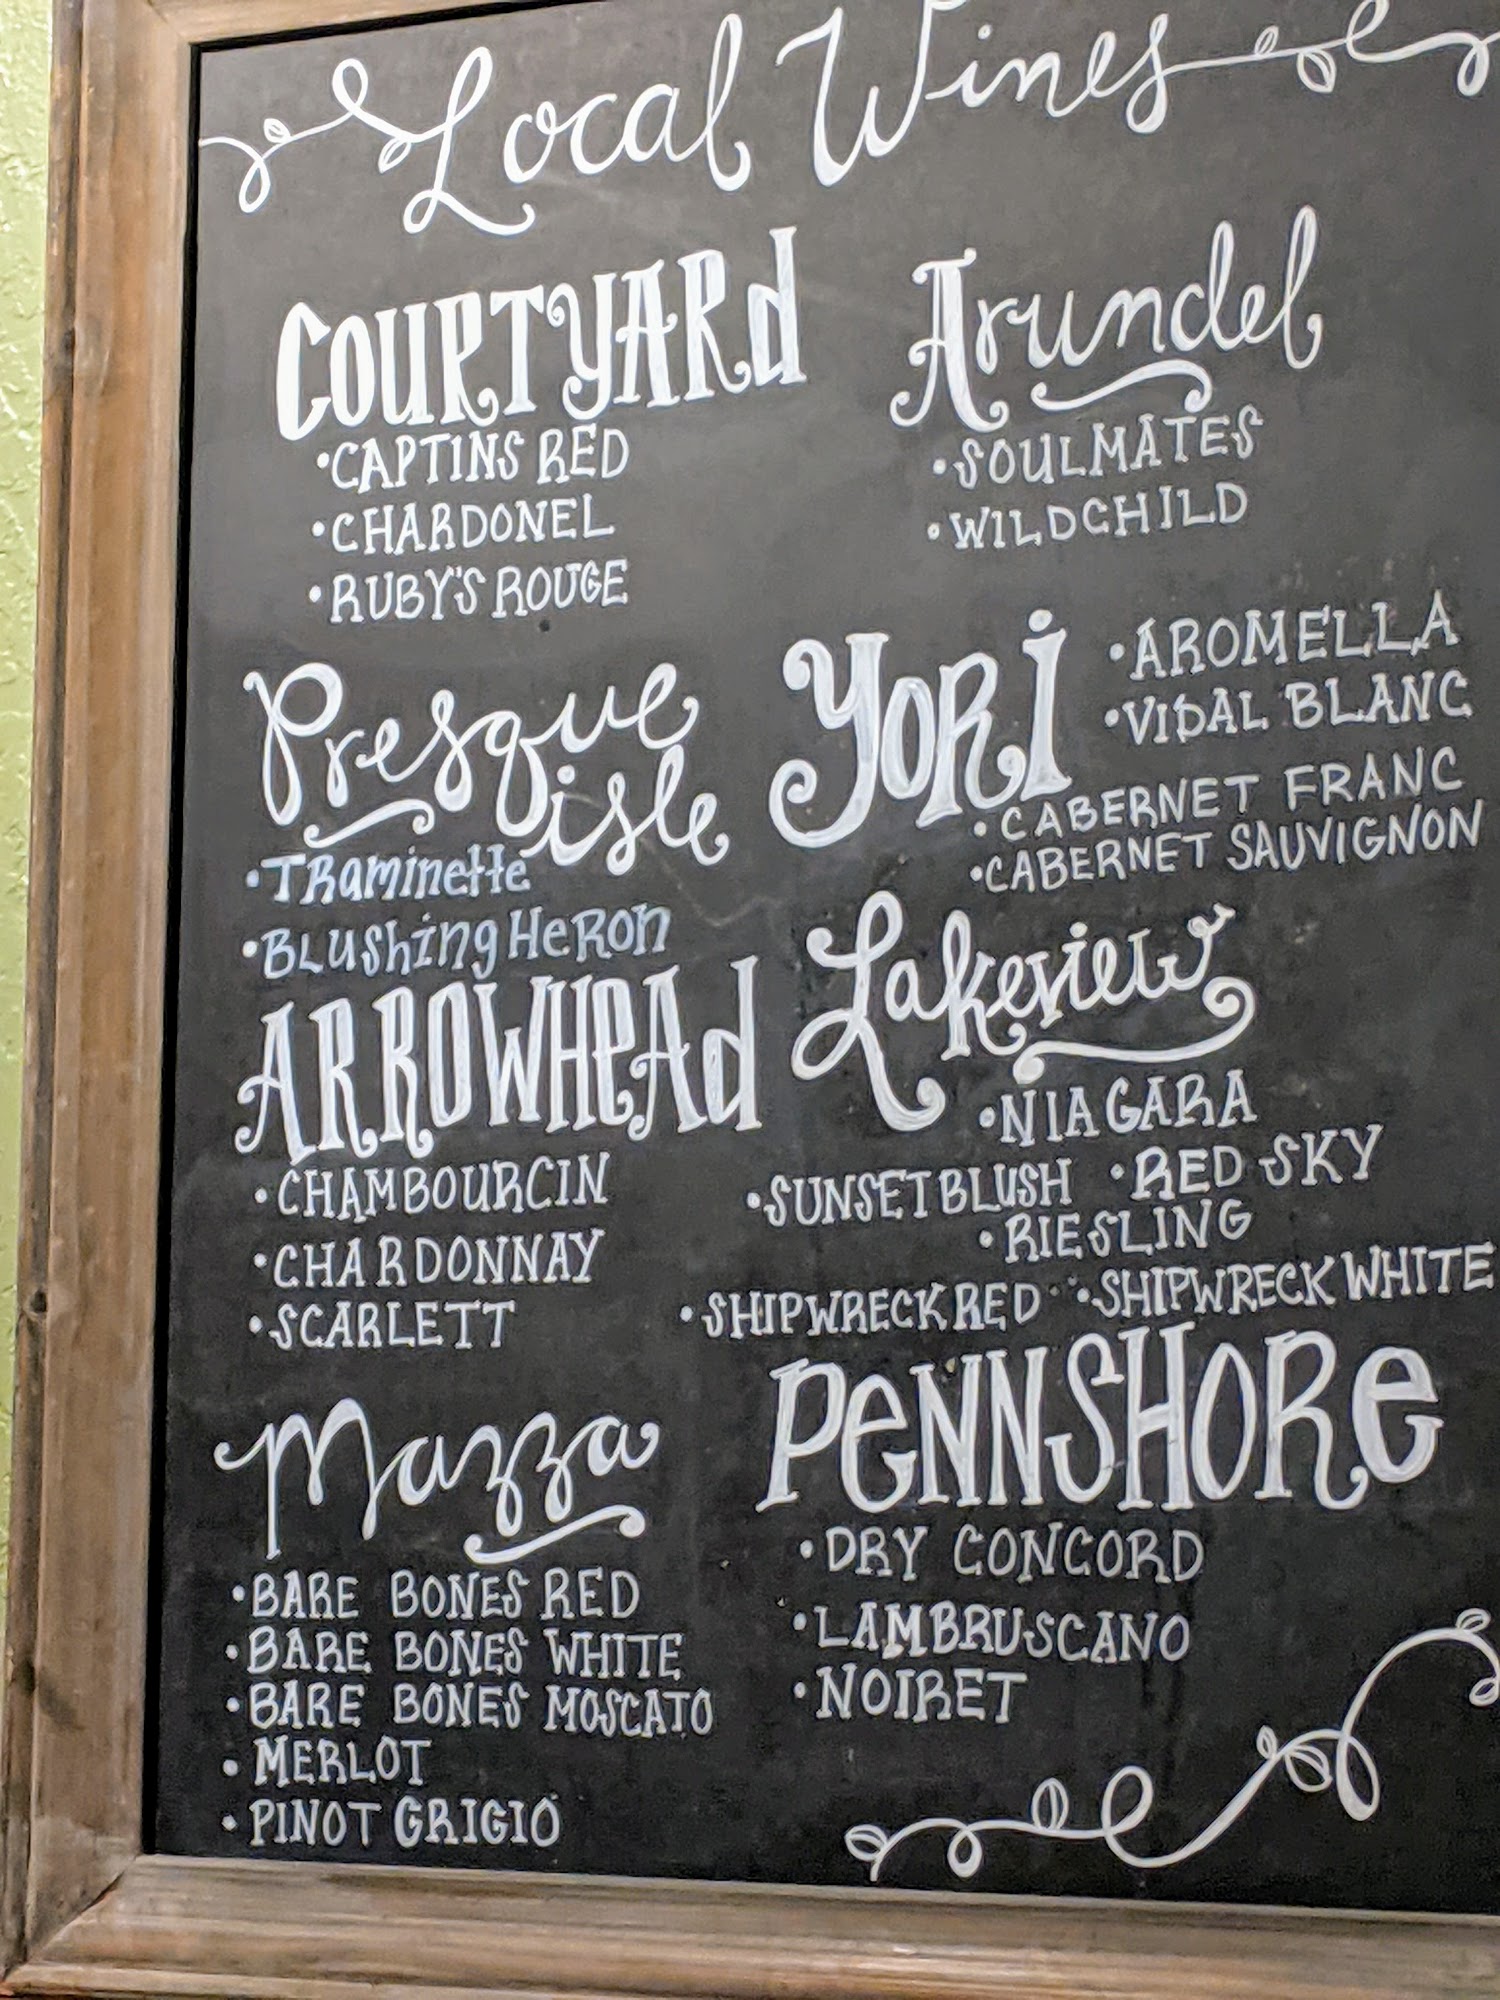 Local Wines
COURTYARD
•CAPTINS RED
•CHARDONEL
•RUBY'S ROUGE
Arundel
•SOULMATES
•WILDCHILD
Presque
isle
•TRaminette
•BLushing HeRon
YORi
•AROMELLA
•VIDAL BLANC
•CABERNET FRANC
•CABERNET SAUVIGNON
ARROWHEAd
•CHAMBOURCIN
•CHARDONNAY
•SCARLETT
Lakeview
•NIAGARA
•SUNSET BLUSH •RED SKY
•RIESLING
•SHIPWRECK RED •SHIPWRECK WHITE
Mazza
•BARE BONES RED
•BARE BONES WHITE
•BARE BONES MOSCATO
•MERLOT
•PINOT GRIGIO
PeNNSHORe
•DRY CONCORD
•LAMBRUSCANO
•NOIRET